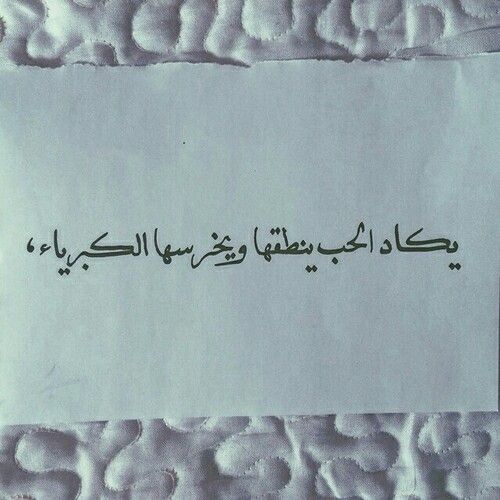 يكاد الحب ينطقها ويخرسها الكبرياء،